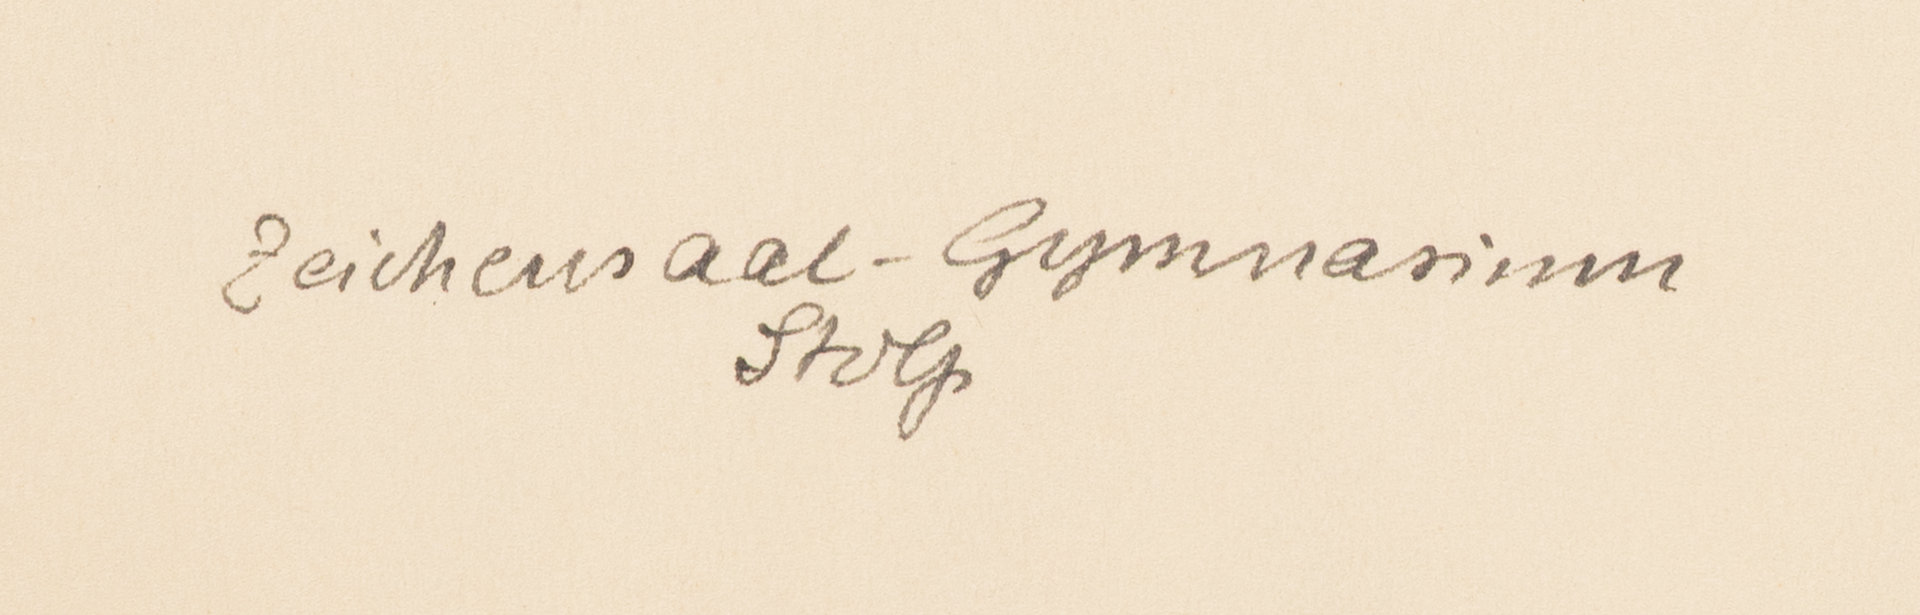 Zeichensaal - Gymnasium
Stolp